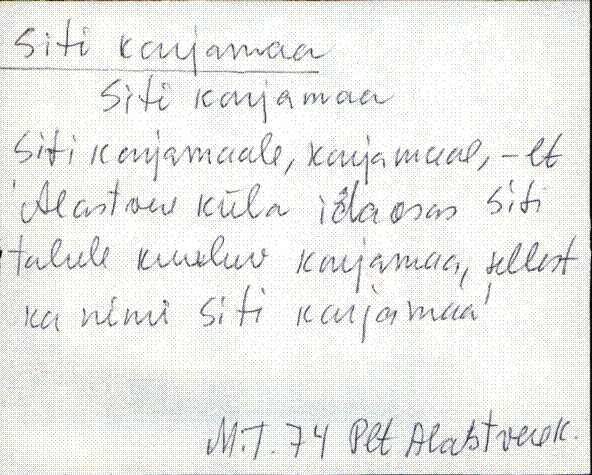 Siti karjamaa
Siti karjamaa
Siti karjamaale, karjamaal, -lt
'Alastvere küla idaosas Siti
talule kuuluv karjamaa, sellest
ka nimi Siti karjamaa'
M.T. 74 Plt Alastvere k.